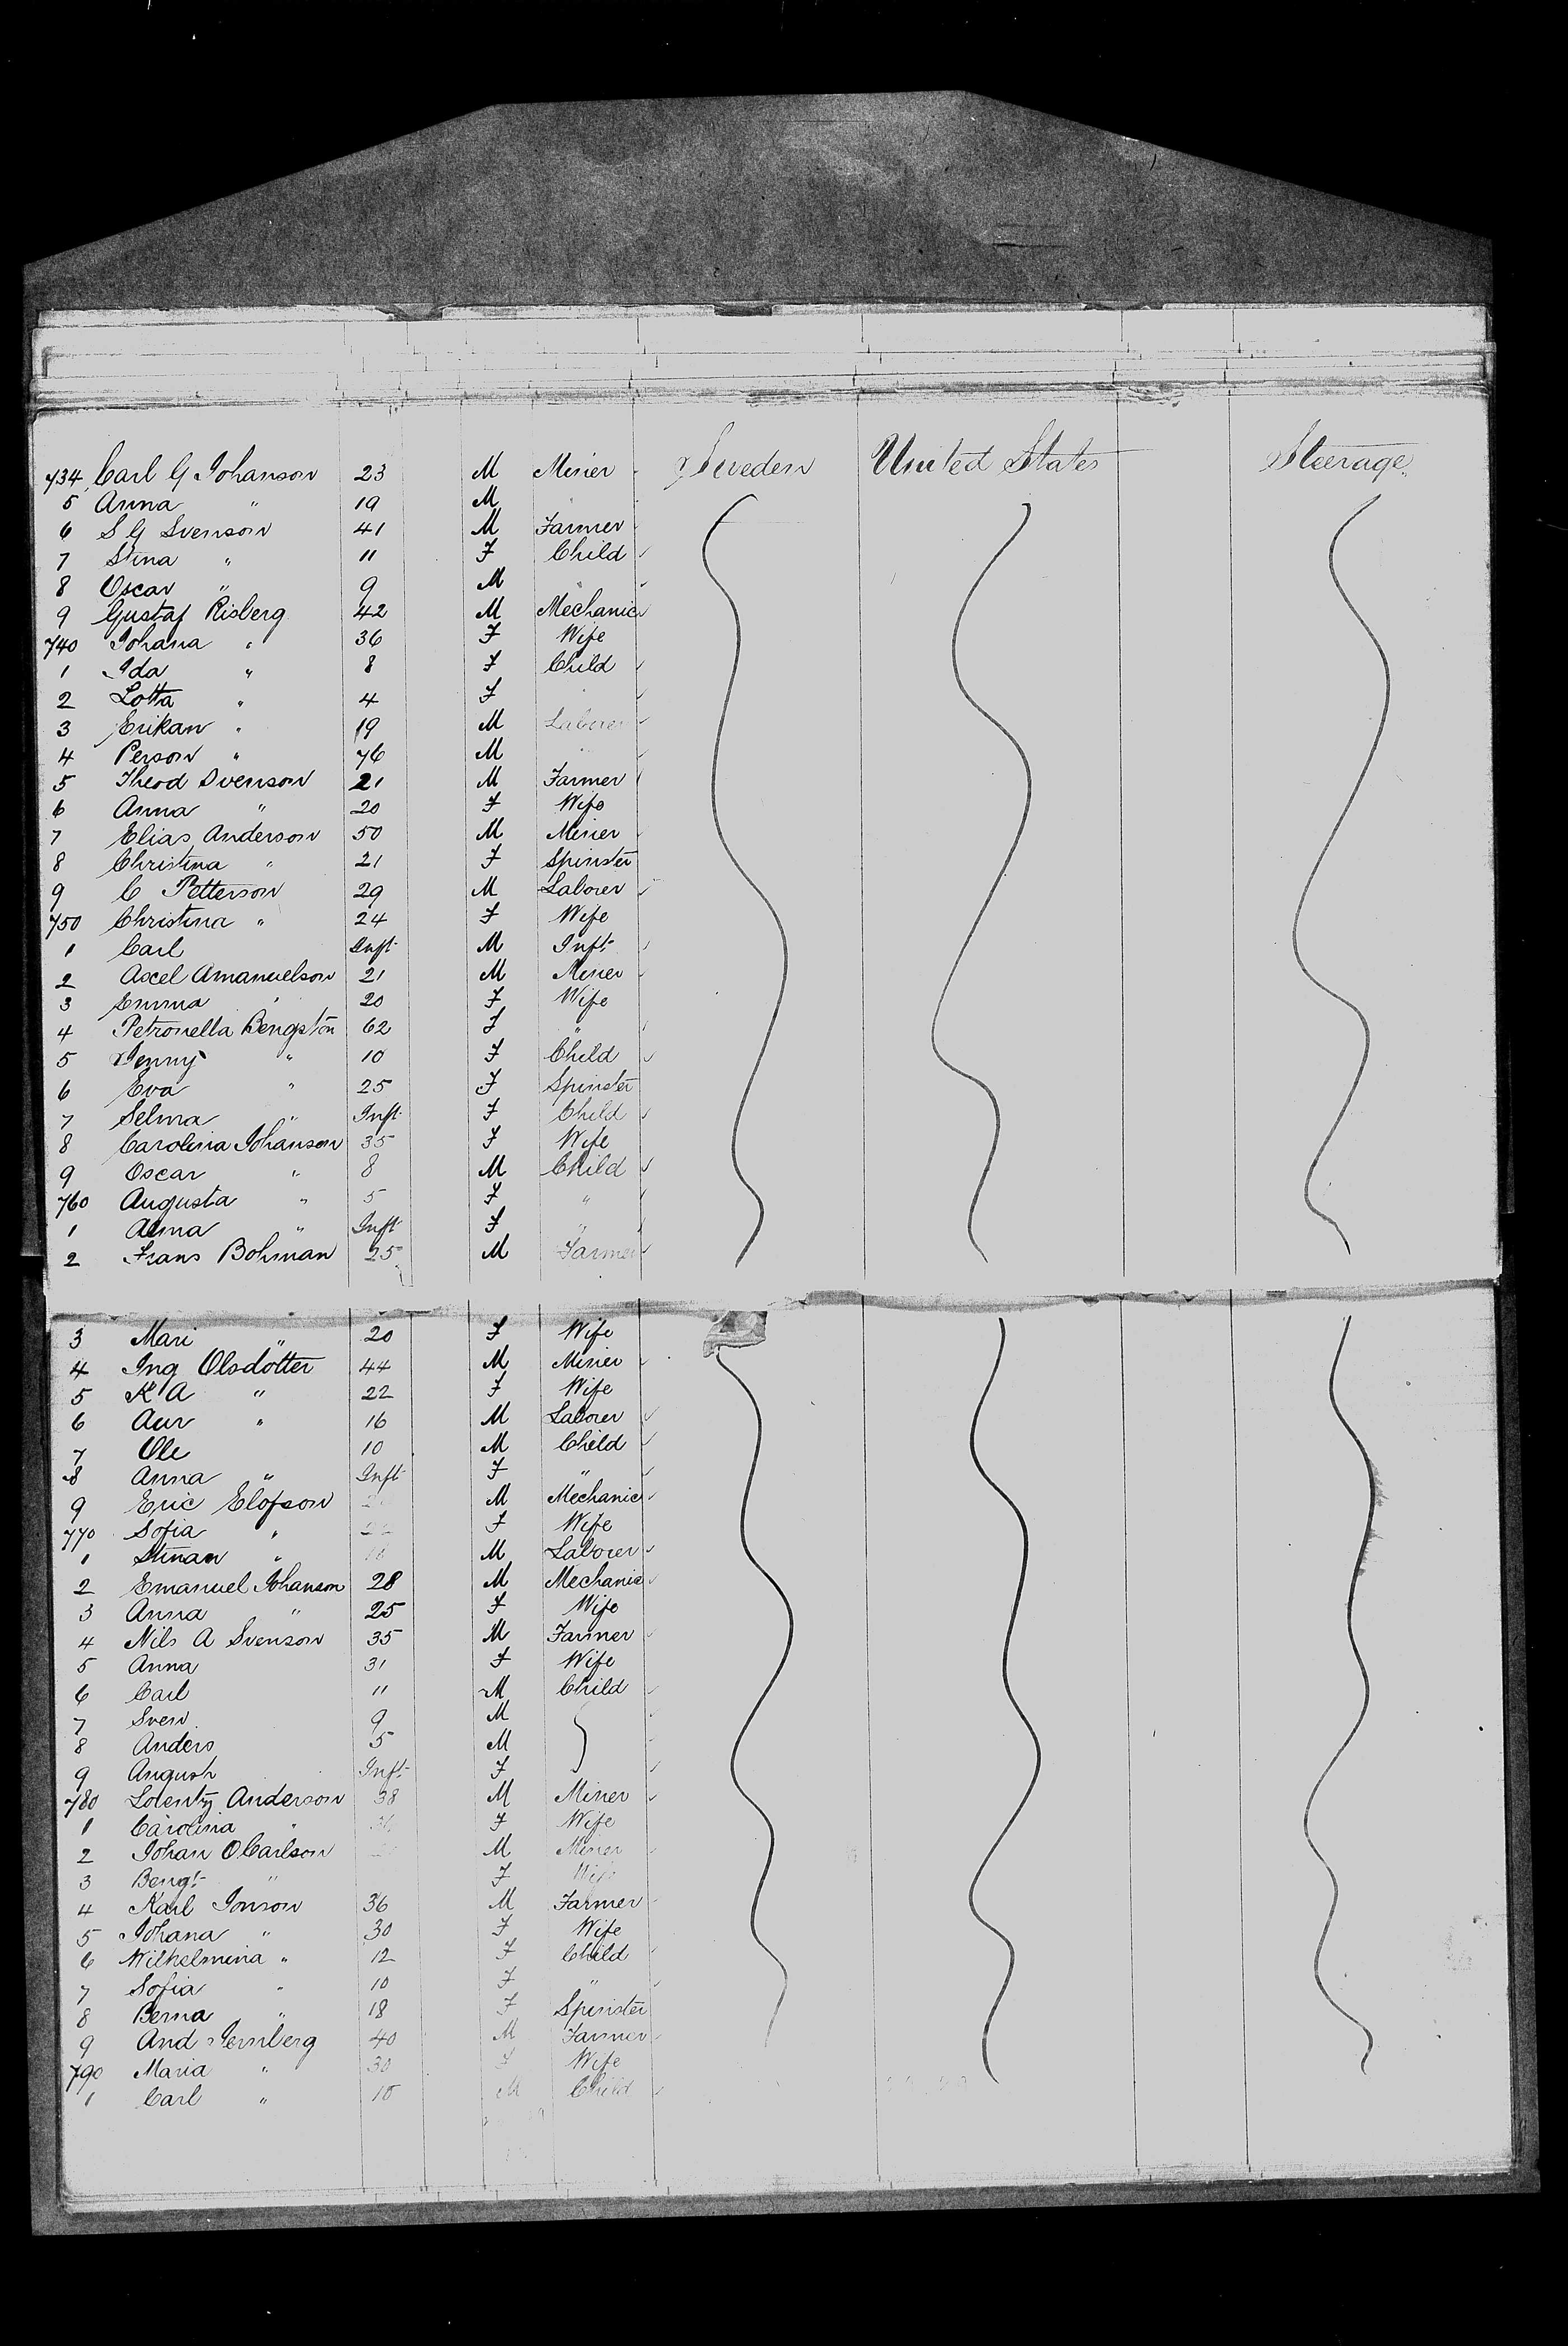 734 Carl G Johanson 23 M Miner Sweden United States Steerage
5 Anna " 19 M "
6 S G Svenson 41 M Farmer
7 Stina " 11 F Child
8 Oscar " 9 M "
9 Gustaf Risberg 42 M Mechanic
740 Johana " 36 F Wife
1 Ida " 8 F Child
2 Lotta " 4 F "
3 Erikan " 19 M Laborer
4 Person " 76 M "
5 Theod Svenson 21 M Farmer
6 Anna " 20 F Wife
7 Elias Anderson 50 M Miner
8 Christina " 21 F Spinster
9 C Petterson 29 M Laborer
750 Christina " 24 F Wife
1 Carl Inft M Inft
2 Axel Amanuelson 21 M Miner
3 Emma " 20 F Wife
4 Petronella Bengston 62 F "
5 Jenny " 10 F Child
6 Eva " 25 F Spinster
7 Selma " Inft F Child
8 Carolina Johanson 35 F Wife
9 Oscar " 8 M Child
760 Augusta " 5 F "
1 Alma " Inft F "
2 Frans Bohman 25 M Farmer
3 Mari " 20 F Wife
4 Ing Olsdotter 44 M Miner
5 K A " 22 F Wife
6 " 16 M Laborer
7 Ole 10 M Child
8 Anna " Inft F "
9 Eric Elofson M Mechanic
770 Sofia " F Wife
1 Stinan " M Laborer
2 Emanuel Johanson 28 M Mechanic
3 Anna " 25 F Wife
4 Nils A Svenson 35 M Farmer
5 Anna 31 F Wife
6 Carl 11 M Child
7 Sven 9 M
8 Anders 5 M
9 August Inft F
780 Lorentz Anderson 38 M Miner
1 Carolina " F Wife
2 Johan O Carlson M Miner
3 Bengt " F Wife
4 Karl Jonson 36 M Farmer
5 Johana " 30 F Wife
6 Wilhelmina " 12 F Child
7 Sofia " 10 F "
8 Berna " 18 F Spinster
9 And Jernberg 40 M Farmer
790 Maria " 30 F Wife
1 Carl " 10 M Child